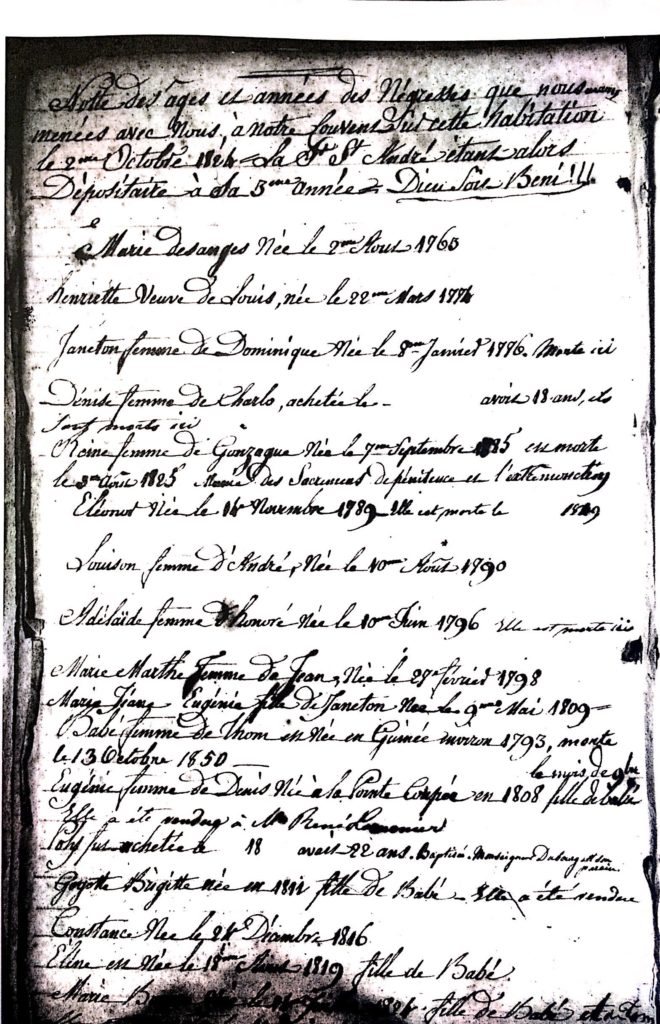 Notte des ages et années des Négresses que nous
menées avec nous, à notre Couvent sur cette habitation
le 2eme Octobre 1824 la St André étant alors
Dépositaire à sa 3eme année Dieu Sois Beni!!!
Marie desanges Née le 2me Aout 1763
henriette Veuve de Louis, née le 22eme Mars 1774
Janeton femme de Dominique Née le 8me Janvier 1776. Morte ici
Dénise femme de Charlo, achetée le - avoit 18 ans, ils
sont morts ici
Reine femme de Gonzague Née le 7me Septembre est morte
le 3me Août 1825 Munie des Sacremens de pénitence et l'extremonction
Eléonor Née le 14 Novembre 1789 Elle est morte le
Louison femme d'André, Née le 10me Août 1790
Adélaïde femme d'honoré Née le 10me Juin 1796 Elle est morte ici
Marie Marthe femme de Jean, Née le 27 février 1798
Marie Jeane Eugénie fille de Janeton Née le 9me Mai 1809
Babé femme de Thom est Née en Guinée environ 1793, morte
le 13 Octobre 1850
le mois de 9bre
Eugénie femme de Denis Née à la Pointe Coupée en 1808 fille de babé
Elle a été vendue à Mr René
Poly fut achetée le 18 avait 22 ans. Baptisé. Monseigneur Dubourg est son
parain
Gogotte Brigitte née en 1811 fille de Babé - Elle a été vendue
Constance Née le 24 Décembre 1816
Eline est Née le 18me Aout 1819 fille de Babé.
Marie Née le 1824. fille de Babé et